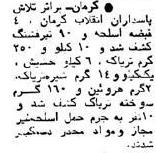 ● کرمان- براثر تلاش
پاسداران انقلاب کرمان ، ۴
قبضه اسلحه و ۹۰ تیرفشنگ
کشف شد و ۱۰ کیلو و ۲۵۰
گرم تریاک ، ۶ کیلو حشیش ،
یککیلو و ۱۴ گرم شیره‌تریاک،
۲گرم هروئین و ۱۶۰ گرم
سوخته تریاک کشف شد و
۱۰نفر به جرم حمل اسلحه‌غیر
مجاز و مواد مخدر دستگیر
شدند.